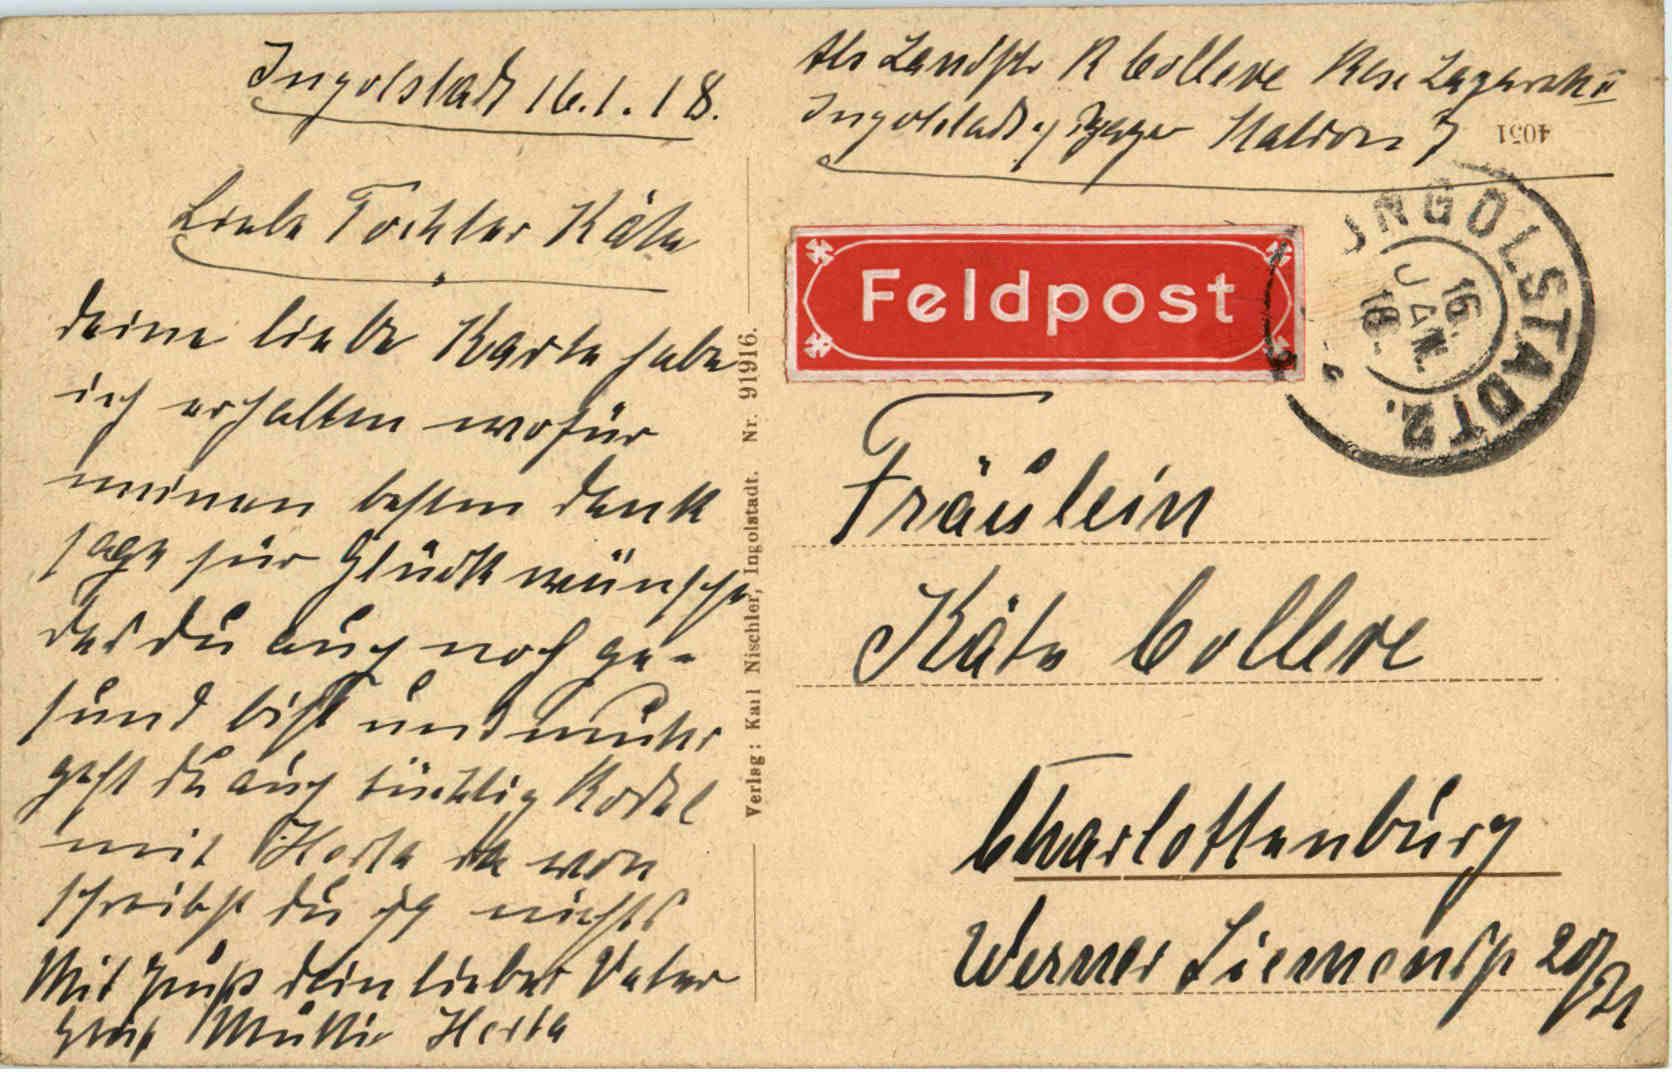 Ingolstadt 16.1.18.
Liebe Tochter Käte
deine liebe Karte habe
ich erhalten wofür
meinen besten dank
sage für Glück wünsche
das du auch noch ge-
sund bist und
gehst du auch tüchtig Rodel
mit Herta da von
schreibst du ja nichts
Mit Gruß dein lieber Vater
Gruß Mutti Herta
Verlag: Karl Nischler, Ingolstadt. Nr. 91916.
Abs Landstr R Collere Res. Lazarett II
Ingolstadt 7
4051
Feldpost
INGOLSTADT 2.
16. JAN. 18.
Fräulein
Käte Collere
Charlottenburg
Werner Siemensstr 20/21